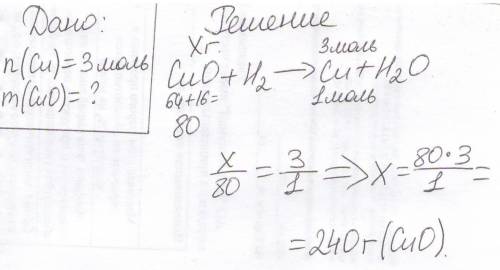 Дано:
n(Cu)=3моль
m(CuO)=?
Решение
Xг.
3моль
CuO+H₂→Cu+H₂O
64+16=
1моль
80
X/80=3/1=>X=80•3/1=
=240г(CuO).